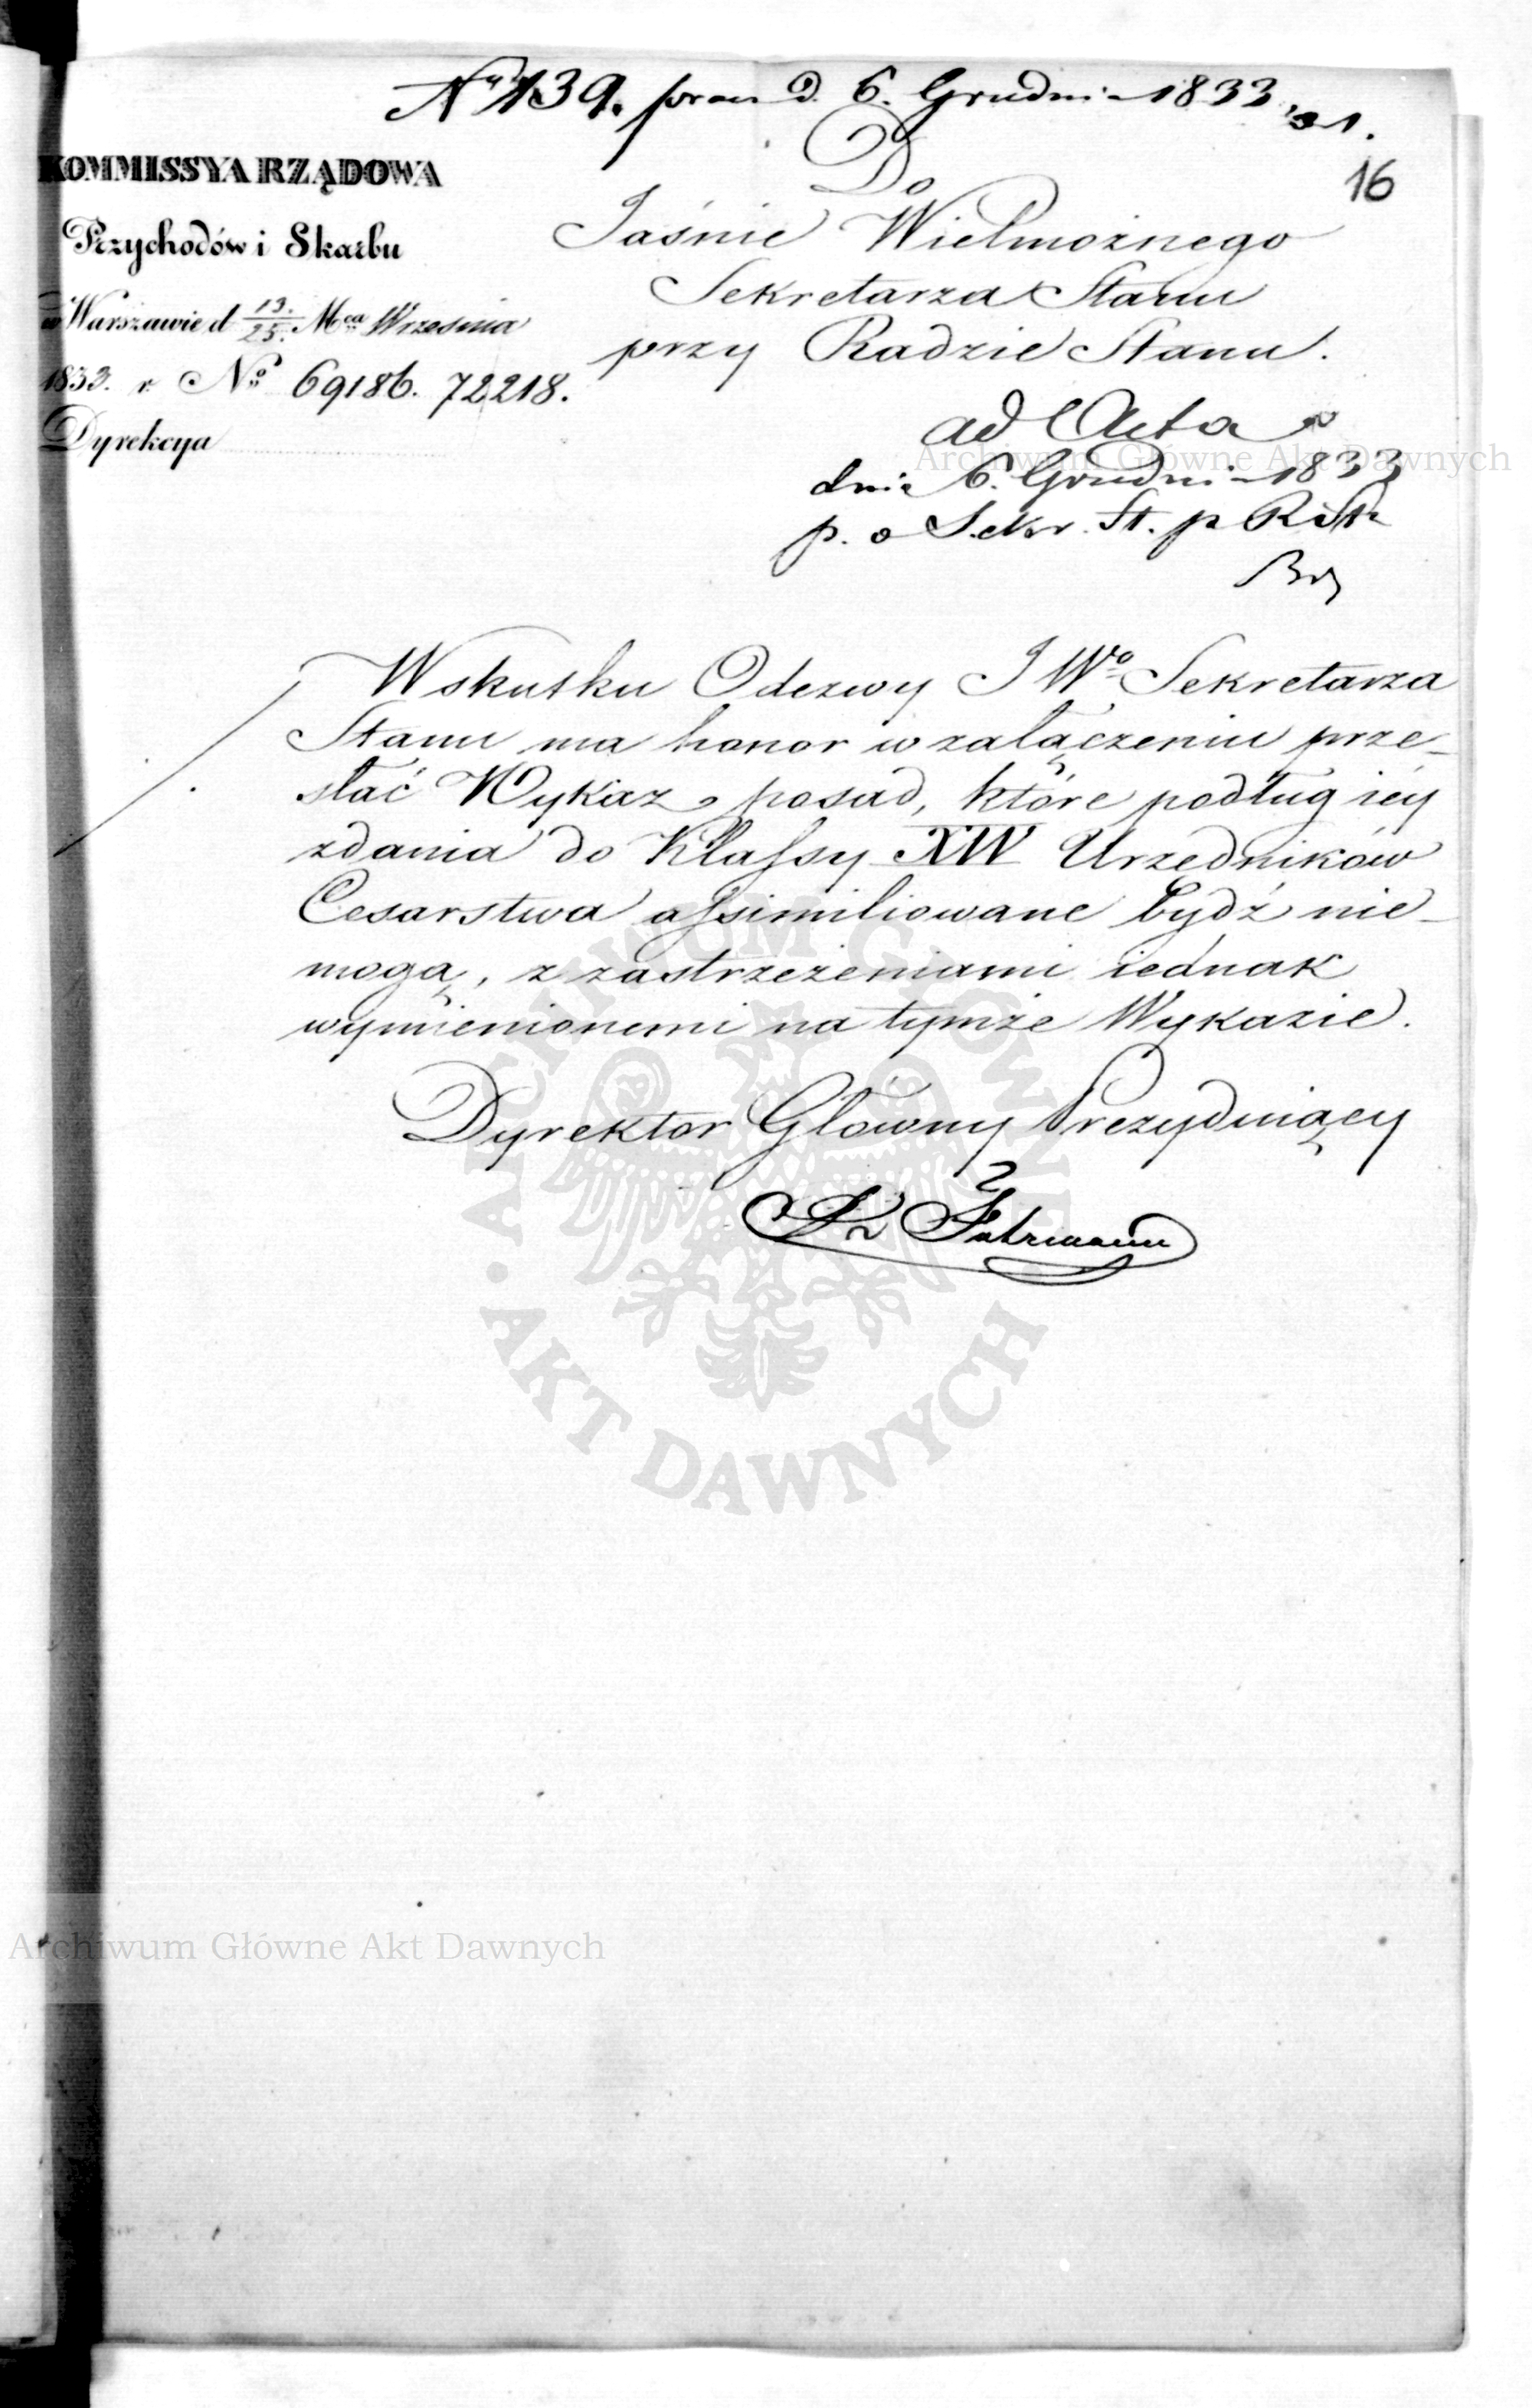 N° 139. pras d. 6. Grudnia 1833
16
KOMMISSYA RZĄDOWA
Przychodów i Skarbu
w Warszawie d 13./25. Mca Września
1833. r. No 69186. 72218.
Dyrekcya
Do
Jaśnie Wielmożnego
Sekretarza Stanu
przy Radzie Stanu.
ad Acta
dnia 6. Grudnia 1833
p. o Sekr. St. p R Stu
Wskutku Odezwy J Wo Sekretarza
Stanu ma honor w załączeniu prze-
słać Wykaz posad, które podług iéy
zdania do Klassy XIV Urzedników
Cesarstwa assimiliowane bydź nie-
mogą, z zastrzeżeniami iednak
wymienionemi na tymże Wykazie.
Dyrektor Główny Prezyduiący
Fuhrmann
Archiwum Główne Akt Dawnych
ARCHIWUM GŁÓWNE · AKT DAWNYCH ·
Archiwum Główne Akt Dawnych